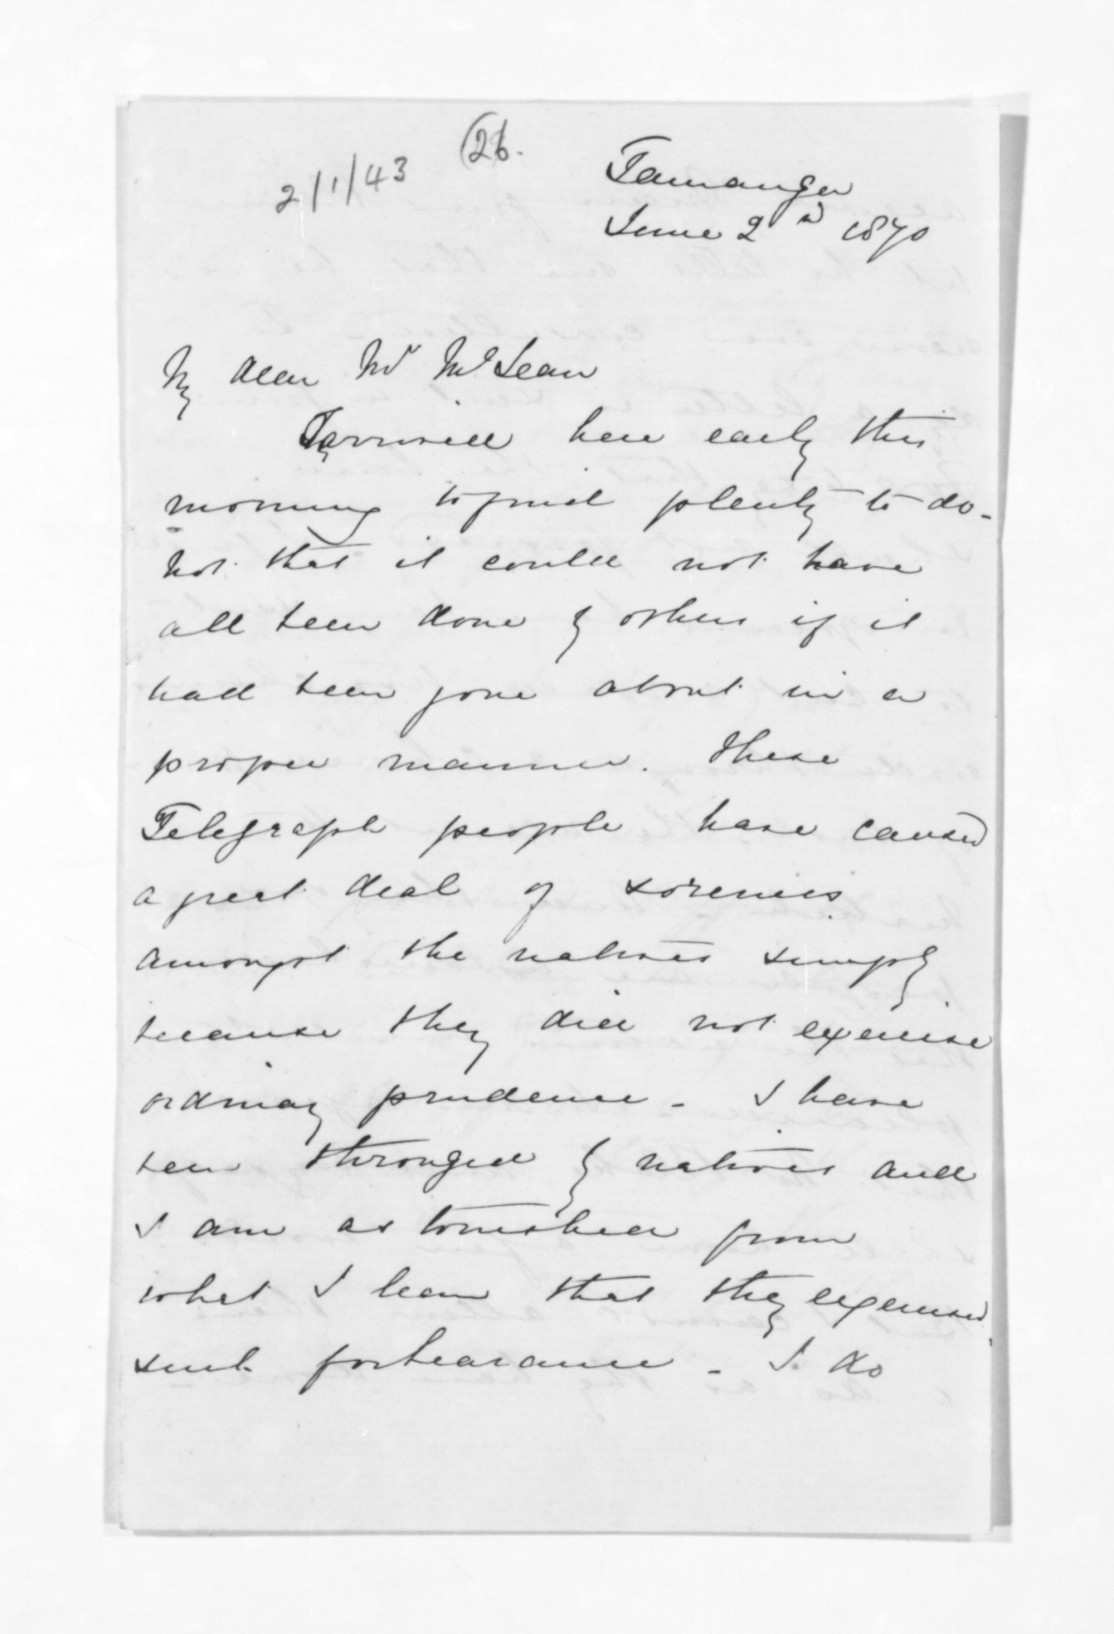 2/1/43 (26.
Tauranga
June 2nd 1870
My dear Mr McLean
I arrived here early this
morning to find plenty to do -
not that it could not have
all been done by others if it
had been gone about in a
proper manner. These
Telegraph people have caused
a great deal of soreness
amongst the natives simply
because they did not exercise
ordinary prudence - I have
been thronged by natives and
I am astonished from
what I learn that they exercised
such forbearance - I do